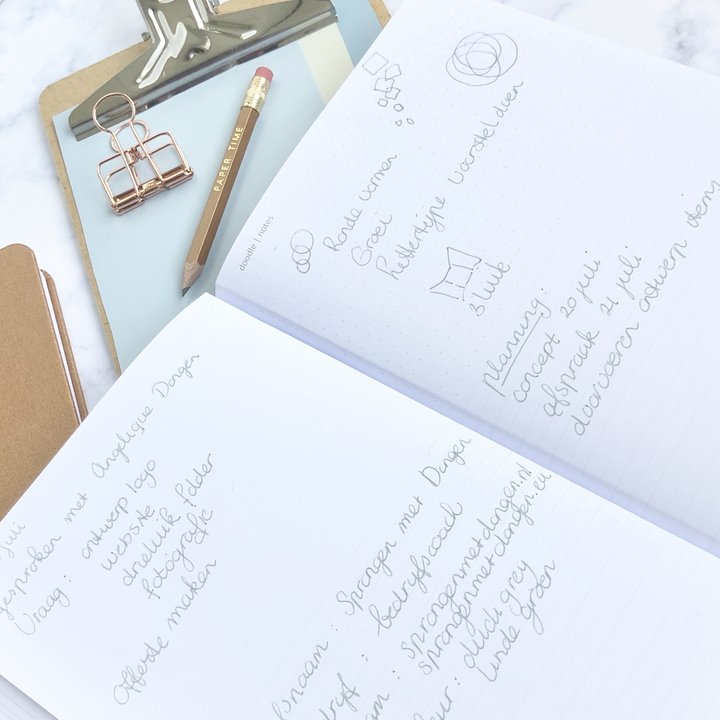 PAPER TIME
doodle | notes
Ronde vormen
Groei
lettertype voorstel doen
3 luik
planning:
concept 20 juli
afspraak 21 juli
doorvoeren ontwerp
juli
esproken met Angelique Dongen
Vraag : ontwerp logo
website
drieluik folder
fotografie
Offerte maken
fsnaam : Sprongen met Dongen
ijf : bedrijfscoach
am : sprongenmetdongen.nl
sprongenmetdongen.eu
eur : grey
linde groen